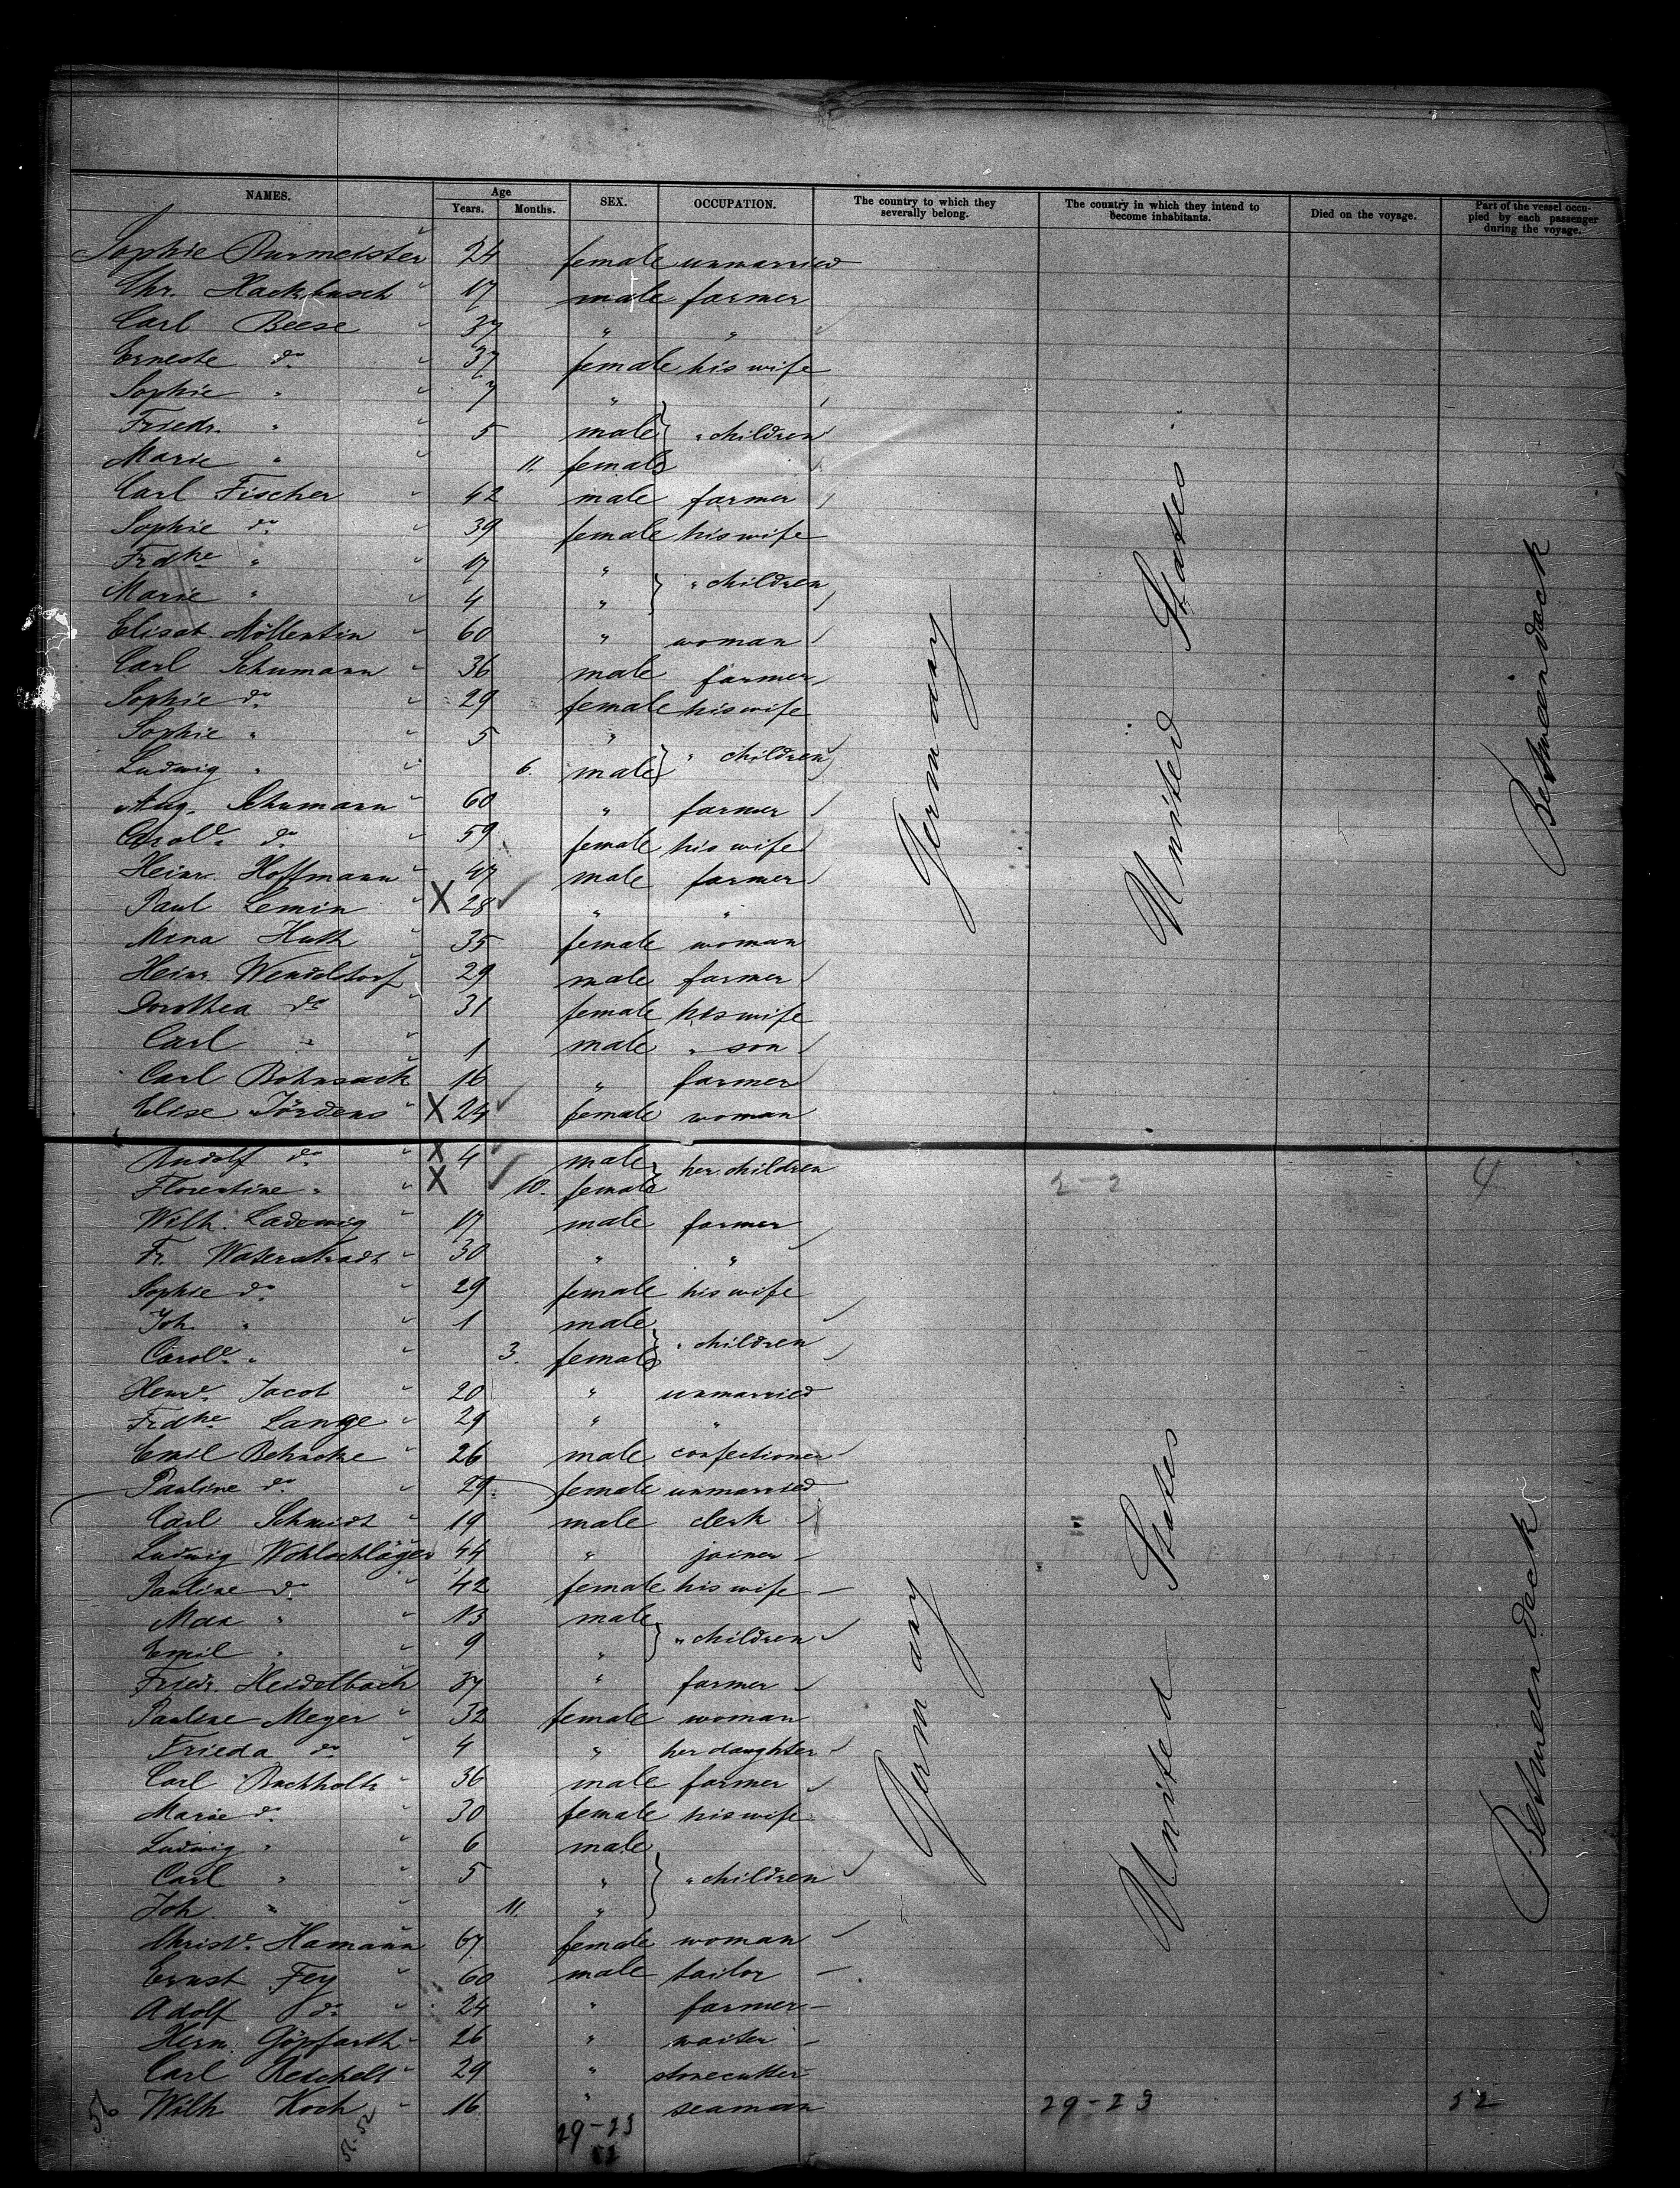 NAMES. Age Years. Months. SEX. OCCUPATION. The country to which they severally belong. The country in which they intend to become inhabitants. Died on the voyage. Part of the vessel occupied by each passenger during the voyage.
Sophie Burmeister " 24 female unmarried
Chr. Hackbusch " 17 male farmer
Carl Beese " 37 " "
Erneste do " 37 female his wife
Sophie " " 7 "
Friedr. " " 5 male " children
Marie " " 11. female
Carl Fischer " 42 male farmer
Sophie do " 39 female his wife
Frdke " " 17 " " children
Marie " " 4 "
Elisab. Möllentin " 60 " woman
Carl Schumann " 36 male farmer
Sophie do " 29 female his wife
Sophie " " 5 " " children
Ludwig " " 6. male
Aug. Schumann " 60 " farmer
Carole do " 59 female his wife
Heinr. Hoffmann " 47 male farmer
Paul Lemin " X 28 " "
Mina Huth " 35 female woman
Heinr. Wendeldorf 29 male farmer
Dorothea do " 31 female his wife
Carl " " 1 male " son
Carl Bohnsack 16 " farmer
Elise Jördens " X 24 female woman
Germany United States Between deck
Rudolf do " X 4 male her children
Florentine " " X 10. female
2-2 4
Wilh. Ladewig " 17 male farmer
Fr. Waterstradt " 30 " "
Sophie do " 29 female his wife
Joh. " " 1 male
Carole " " 3. female " children
Henre Jacob " 20 " unmarried
Frdke Lange " 29 " "
Emil Behncke " 26 male confectioner
Pauline do " 29 female unmarried
Carl Schmidt " 19 male clerk
Ludwig Wohlschläger 44 " joiner
Pauline do " 42 female his wife
Max " " 13 male
Emil " " 9 " " children
Friedr. Heidelbach 37 " farmer
Pauline Meyer " 32 female woman
Frieda do 4 " her daughter
Carl Buchholtz " 36 male farmer
Marie do " 30 female his wife
Ludwig " " 6 male
Carl " " 5 " " children
Joh. " " 11. "
Christe Hamann 67 female woman
Ernst Fey " 60 male tailor
Adolf do " 24 " farmer
Herm. Göpfarth " 26 " waiter
Carl Reichelt " 29 " stonecutter
Wilh Koch " 16 " seaman
Germany United States Between deck
56 52 29-23 52 29-23 52